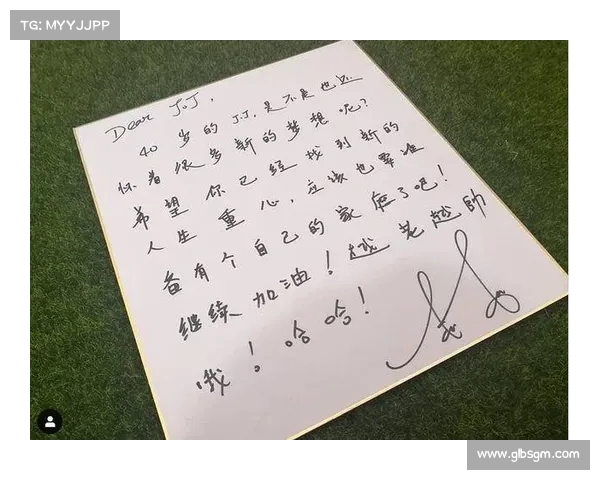 TG: MYYJJPP
Dear J.J,
40岁的J.J.是不是也还
怀着很多新的梦想呢?
希望你已经找到新的
人生重心,应该也要准
备有个自己的家庭了吧!
继续加油!越老越帅
哦!哈哈!
www.glbsgm.com